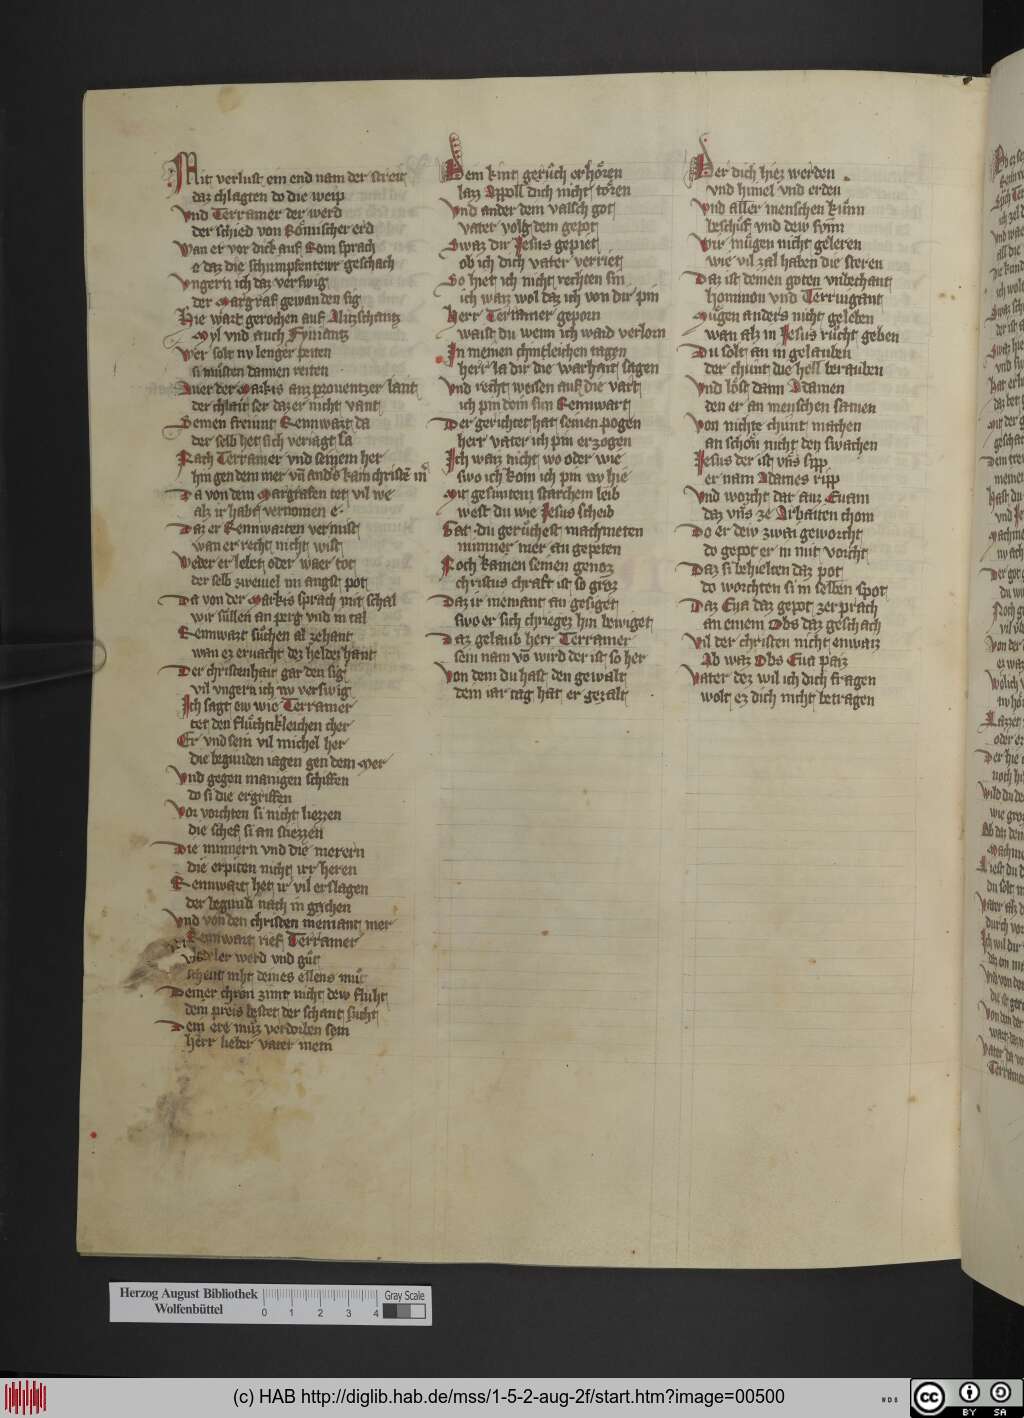 Mit verlust ein end nam der streit
daz chlagten do die weip
Vnd Terramer der werd
der schied von Römischer erd
Wan er vor dick auf Rom sprach
e daz die schumpfentewr geschach
Vngern ich daz verswig
der Margraf gewan den sig
Hie wart gerochen auf Alitzschantz
Myl vnd auch Fyuiantz
Wer solt nv lenger peiten
si müsten dannen reiten
Auer der Markis auz prouentzer lant
der chlait ser daz er nicht vant
Seinen freunt Rennwart da
der selb het sich veriagt sa
Nach Terramer vnd seinem her
hin gen dem mer vn̄ anders kain christē in
Da von dem Margrafen tet vil we
alz ir habt vernomen e
Daz er Rennwarten vermist
wan er recht nicht wist
Weder er lebet oder waer tot
der selb zweiuel im angst pot
Da von der Markis sprach mit schal
wir süllen an perg vnd in tal
Rennwart süchen al zehant
wan ez ervacht dez heldez hant
Der christenhait gar den sig
vil vngern ich nv verswig
Ich sagt ew wie Terramer
tet den flüchtikleichen cher
Er vnd sein vil michel her
die begunden iagen gen dem Mer
Vnd gegen manigen schiffen
do si die ergriffen
Vor vorchten si nicht liezzen
die schef si an stiezzen
Die minnern vnd die merern
die erpiten nicht irr heren
Rennwart het ir vil erslagen
der begund nach in gachen
Vnd von den christen meniant mer
Rennwart rief Terramer
edeler werd vnd güt
scheut nicht deines ellens müt
Deiner chron zimt nicht dew flüht
dein preis bestet der schant sücht
Dein ere müz verdorben sein
herr lieber vater mein
Dein kint gerüch erhören
laz Appoll dich nicht tören
Vnd ander dein valsch got
vater volg dem gepot
Swaz dir Jesus gepiet
ob ich dich vater verriet
So hiet ich nicht rechten sin
ich waiz wol daz ich von dir pin
Herr Terramer geporn
waist du wenn ich ward verlorn
In meinen chintleichen tagen
herr la dir die warhait sagen
Vnd recht weisen auf die vart
ich pin dein sun Rennwart
Der gerichtet hat seinen pogen
herr vater ich pin erzogen
Ich waiz nicht wo oder wie
swo ich kom ich pin nv hie
Mit gesuntem starchem leib
west du wie Jesus scheib
Gat du gerüchest machmeten
nimmer mer an gepeten
Noch kainen seinen genoz
christus chraft ist so groz
Daz ir meniant an gesiget
swo er sich chrieges hin bewiget
Daz gelaub herr Terramer
sein nam vō wird der ist so her
Von dem du hast den gewalt
dem iar tag hat er gezalt
Der dich hiez werden
vnd himel vnd erden
Vnd aller menschen künn
beschüf vnd dew sunn
Wir mügen nicht geleren
wie vil zal haben die steren
Daz ist deinen goten vnbechant
hominon vnd Terrnigant
Mügen anders nicht geleben
wan alz in Jesus rücht geben
Du solt an in gelauben
der chunt die hell berauben
Vnd löst dann Adamen
den er an menschen samen
Von nichte chunt machen
an schön nicht den swachen
Jesus der ist vn̄s sipp
er nam Adames ripp
Vnd worcht dar auz Euam
daz vn̄s ze Arbaiten chom
Do er dew zwai geworcht
do gepot er in mit vorcht
Daz si behielten daz pot
do worchten si in selben spot
Daz Eua daz gepot zerprach
an einem Obs daz geschach
Vil der christen nicht enwaiz
Ab waz Obs Eua paiz
Vater dez wil ich dich fragen
wolt ez dich nicht betragen
Herzog August Bibliothek
Wolfenbüttel
Gray Scale
0 1 2 3 4
(c) HAB http://diglib.hab.de/mss/1-5-2-aug-2f/start.htm?image=00500
WDB
cc BY SA